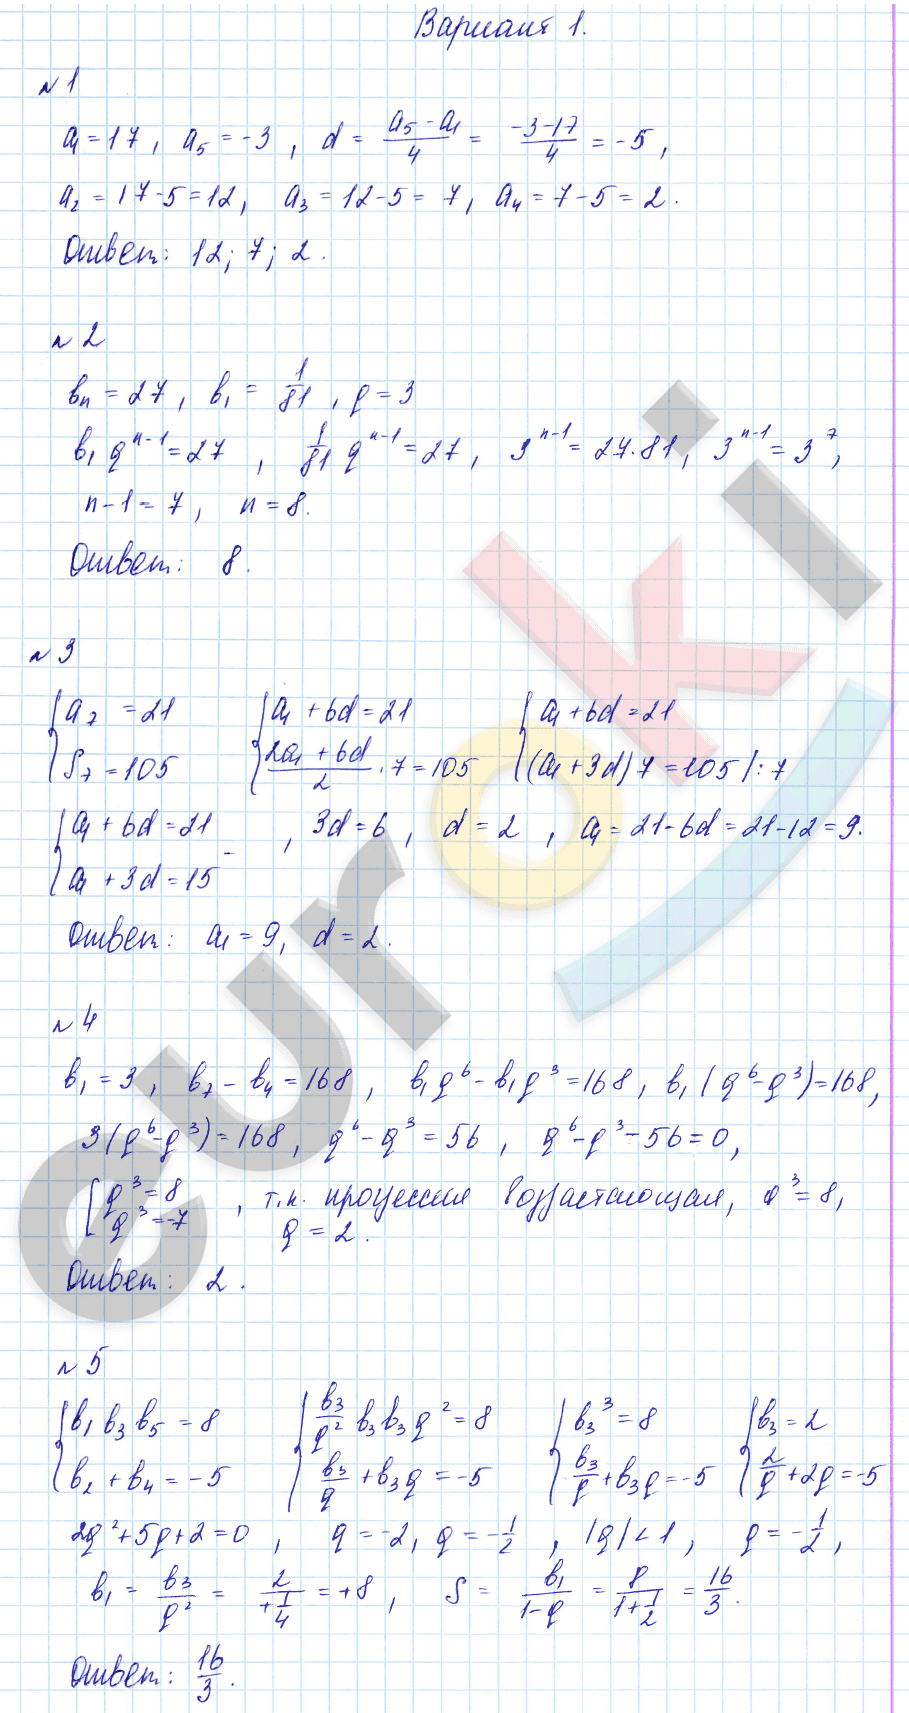 Вариант 1.
№1
a₁ = 17, a₅ = -3, d = (a₅ - a₁)/4 = (-3-17)/4 = -5,
a₂ = 17-5 = 12, a₃ = 12-5 = 7, a₄ = 7-5 = 2.
Ответ: 12; 7; 2.
№2
bₙ = 27, b₁ = 1/81, q = 3
b₁ qⁿ⁻¹ = 27, 1/81 qⁿ⁻¹ = 27, 3ⁿ⁻¹ = 27·81, 3ⁿ⁻¹ = 3⁷,
n-1 = 7, n = 8.
Ответ: 8.
№3
{a₇ = 21 {a₁ + 6d = 21 {a₁ + 6d = 21
{S₇ = 105 {(2a₁ + 6d)/2 · 7 = 105 {(a₁ + 3d) 7 = 105 |: 7
{a₁ + 6d = 21 -, 3d = 6, d = 2, a₁ = 21-6d = 21-12 = 9.
{a₁ + 3d = 15
Ответ: a₁ = 9, d = 2.
№4
b₁ = 3, b₇ - b₄ = 168, b₁q⁶ - b₁q³ = 168, b₁(q⁶-q³) = 168,
3(q⁶-q³) = 168, q⁶ - q³ = 56, q⁶ - q³ - 56 = 0,
[q³ = 8
[q³ = -7 , т.к. прогрессия возрастающая, q³ = 8,
q = 2.
Ответ: 2.
№5
{b₁ b₃ b₅ = 8 {b₃/q² b₃ b₃q² = 8 {b₃³ = 8 {b₃ = 2
{b₂ + b₄ = -5 {b₃/q + b₃q = -5 {b₃/q + b₃q = -5 {2/q + 2q = -5
2q² + 5q + 2 = 0, q = -2, q = -1/2, |q| < 1, q = -1/2,
b₁ = b₃/q² = 2/(+1/4) = +8, S = b₁/(1-q) = 8/(1+1/2) = 16/3.
Ответ: 16/3.
euroki